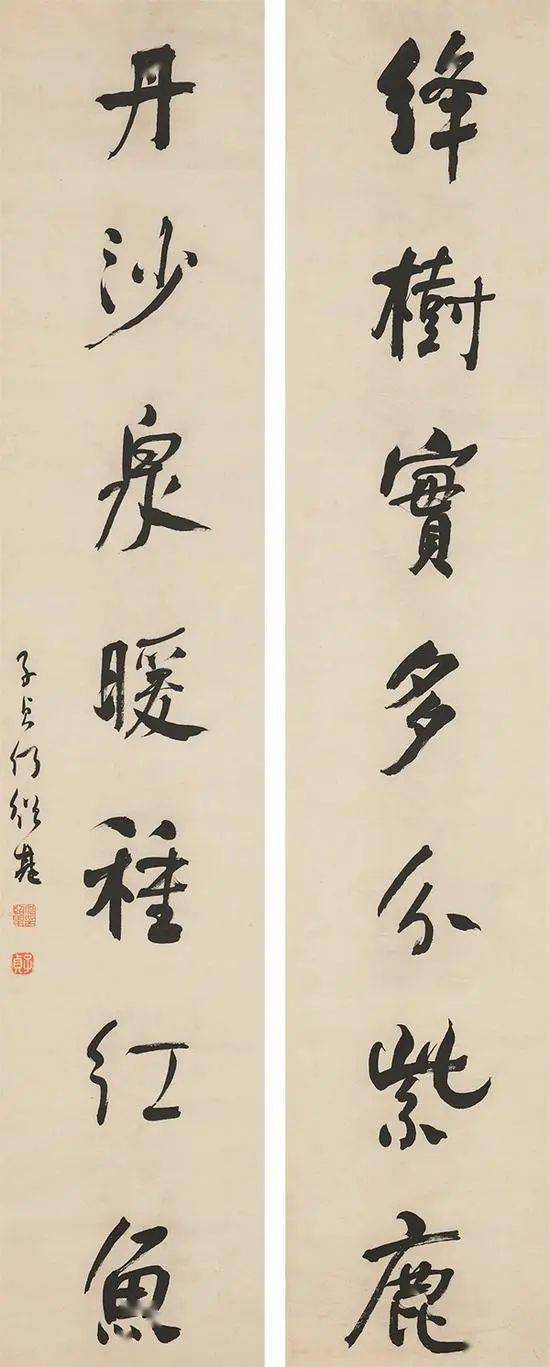 絳樹實多分紫鹿
丹沙泉暖種紅魚
子貞何紹基
子貞